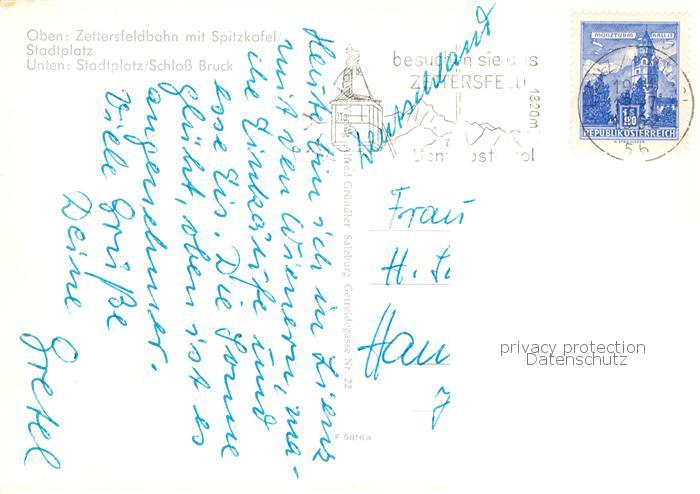 Oben: Zettersfeldbahn mit Spitzkofel/
Stadtplatz
Unten: Stadtplatz/Schloß Bruck
Heute bin ich in Lienz
mit den Wienern, ma-
che Einkäufe und
esse Eis. Die Sonne
glüht, oben ist es
angenehmer.
Viele Grüße
Deine
Gretel
Alfred Gründler Salzburg Getreidegasse Nr. 22
F 5816a
besuchen sie das
ZETTERSFELD
1820m
MÜNZTURM HALL I.T.
S 1.80
REPUBLIK ÖSTERREICH
Deutschland
Frau
H.
Han
privacy protection
Datenschutz